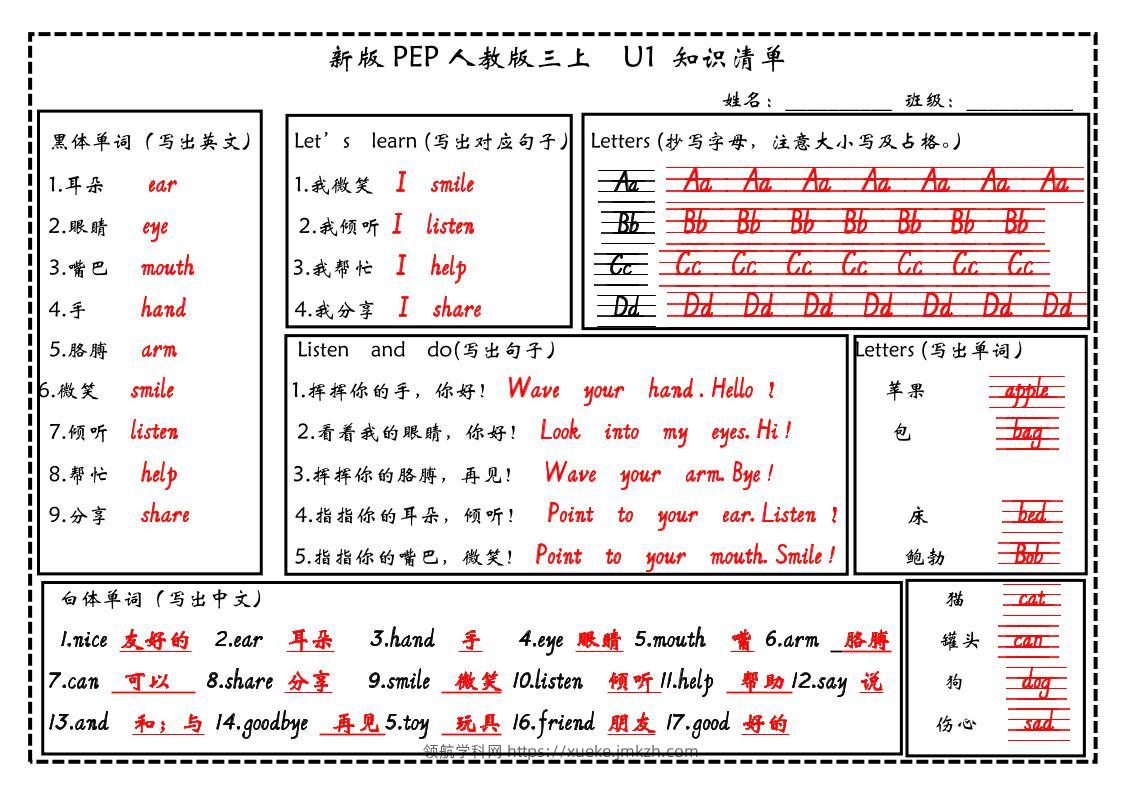 新版 PEP 人教版三上 U1 知识清单
姓名：__________ 班级：__________
黑体单词（写出英文）
1.耳朵 ear
2.眼睛 eye
3.嘴巴 mouth
4.手 hand
5.胳膊 arm
6.微笑 smile
7.倾听 listen
8.帮忙 help
9.分享 share
Let's learn (写出对应句子)
1.我微笑 I smile
2.我倾听 I listen
3.我帮忙 I help
4.我分享 I share
Letters (抄写字母，注意大小写及占格。)
Aa Aa Aa Aa Aa Aa Aa Aa
Bb Bb Bb Bb Bb Bb Bb Bb
Cc Cc Cc Cc Cc Cc Cc Cc
Dd Dd Dd Dd Dd Dd Dd Dd
Listen and do(写出句子)
1.挥挥你的手，你好！ Wave your hand. Hello !
2.看着我的眼睛，你好！ Look into my eyes. Hi !
3.挥挥你的胳膊，再见！ Wave your arm. Bye !
4.指指你的耳朵，倾听！ Point to your ear. Listen !
5.指指你的嘴巴，微笑！ Point to your mouth. Smile !
Letters (写出单词)
苹果 apple
包 bag
床 bed
鲍勃 Bob
猫 cat
罐头 can
狗 dog
伤心 sad
白体单词（写出中文）
1.nice 友好的 2.ear 耳朵 3.hand 手 4.eye 眼睛 5.mouth 嘴 6.arm _胳膊
7.can 可以 8.share 分享 9.smile 微笑 10.listen 倾听 11.help 帮助 12.say 说
13.and 和；与 14.goodbye 再见 5.toy 玩具 16.friend 朋友 17.good 好的
领航学科网 https://xueke.jmkzh.com